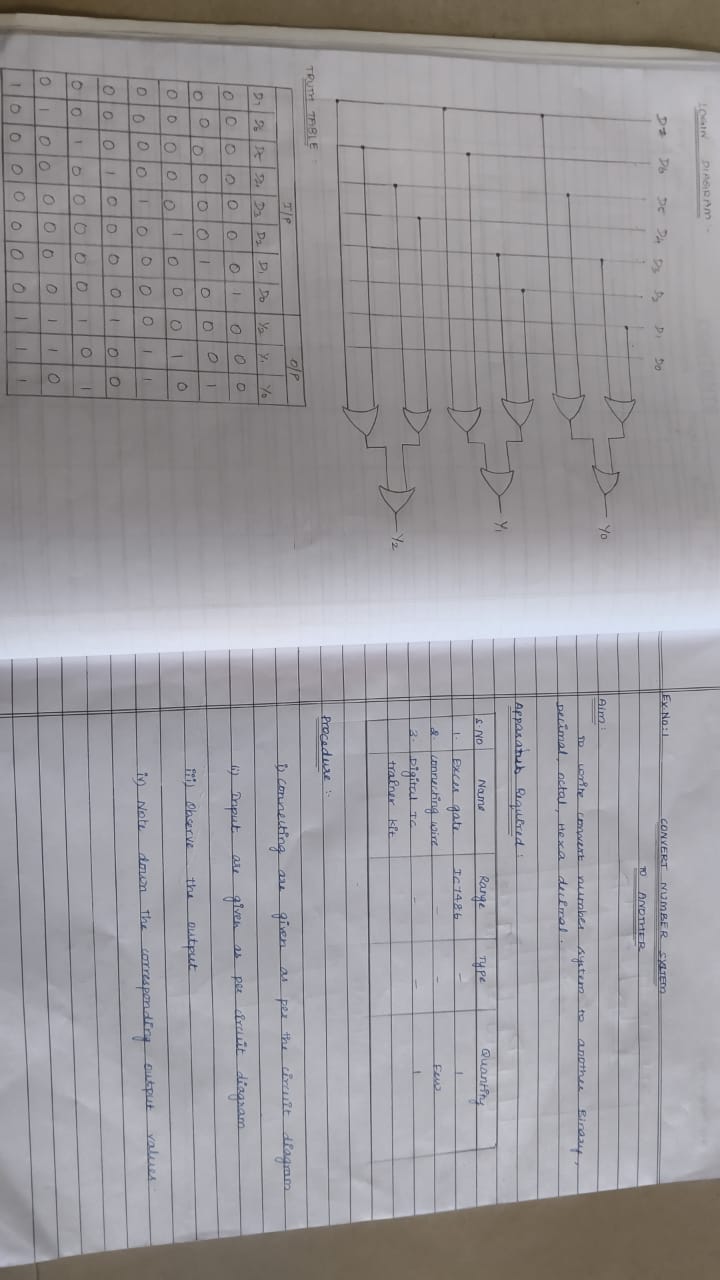 LOGIN DIAGRAM :-
D7 D6 D5 D4 D3 D2 D1 D0
Y0
Y1
Y2
TRUTH TABLE :
I/P O/P
D7 D6 D5 D4 D3 D2 D1 D0 Y2 Y1 Y0
0 0 0 0 0 0 0 1 0 0 0
0 0 0 0 0 0 1 0 0 0 1
0 0 0 0 0 1 0 0 0 1 0
0 0 0 0 1 0 0 0 0 1 1
0 0 0 1 0 0 0 0 1 0 0
0 0 1 0 0 0 0 0 1 0 1
0 1 0 0 0 0 0 0 1 1 0
1 0 0 0 0 0 0 0 1 1 1
Ex.No:1 CONVERT NUMBER SYSTEM
TO ANOTHER
Aim:
To write convert number system to another Binary,
decimal, octal, Hexa decimal.
Apparatus Required :
S.NO Name Range Type Quantity
1. Exces gate IC7486 - 1
2. connecting wire - - Few
3. Digital IC - - 1
trainer kit
Procedure :-
i) connecting are given as per the circuit diagram
ii) Input are given as per circuit diagram
iii) Observe the output
iv) Note down the corresponding output values.